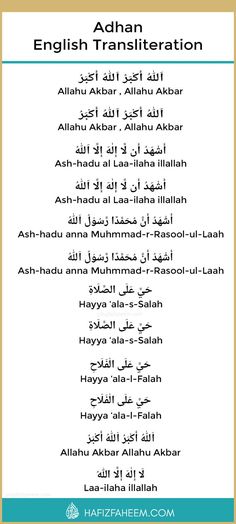 Adhan
English Transliteration
اَللهُ أَكْبَرُ اَللهُ أَكْبَرُ
Allahu Akbar , Allahu Akbar
اَللهُ أَكْبَرُ اَللهُ أَكْبَرُ
Allahu Akbar , Allahu Akbar
أَشْهَدُ أَن لَّا إِلَهَ إِلَّا اَللهُ
Ash-hadu al Laa-ilaha illallah
أَشْهَدُ أَن لَّا إِلَهَ إِلَّا اَللهُ
Ash-hadu al Laa-ilaha illallah
أَشْهَدُ أَنَّ مُحَمَّدًا رَسُوْلُ اللهُ
Ash-hadu anna Muhmmad-r-Rasool-ul-Laah
أَشْهَدُ أَنَّ مُحَمَّدًا رَسُوْلُ اللهُ
Ash-hadu anna Muhmmad-r-Rasool-ul-Laah
حَيَّ عَلَى الصَّلَاةِ
Hayya 'ala-s-Salah
حَيَّ عَلَى الصَّلَاةِ
Hayya 'ala-s-Salah
حَيَّ عَلَى الْفَلَاحِ
Hayya 'ala-l-Falah
حَيَّ عَلَى الْفَلَاحِ
Hayya 'ala-l-Falah
اَللهُ أَكْبَرُ اَللهُ أَكْبَرُ
Allahu Akbar Allahu Akbar
لَا إِلَهَ إِلَّا اللهُ
Laa-ilaha illallah
HAFIZFAHEEM.COM